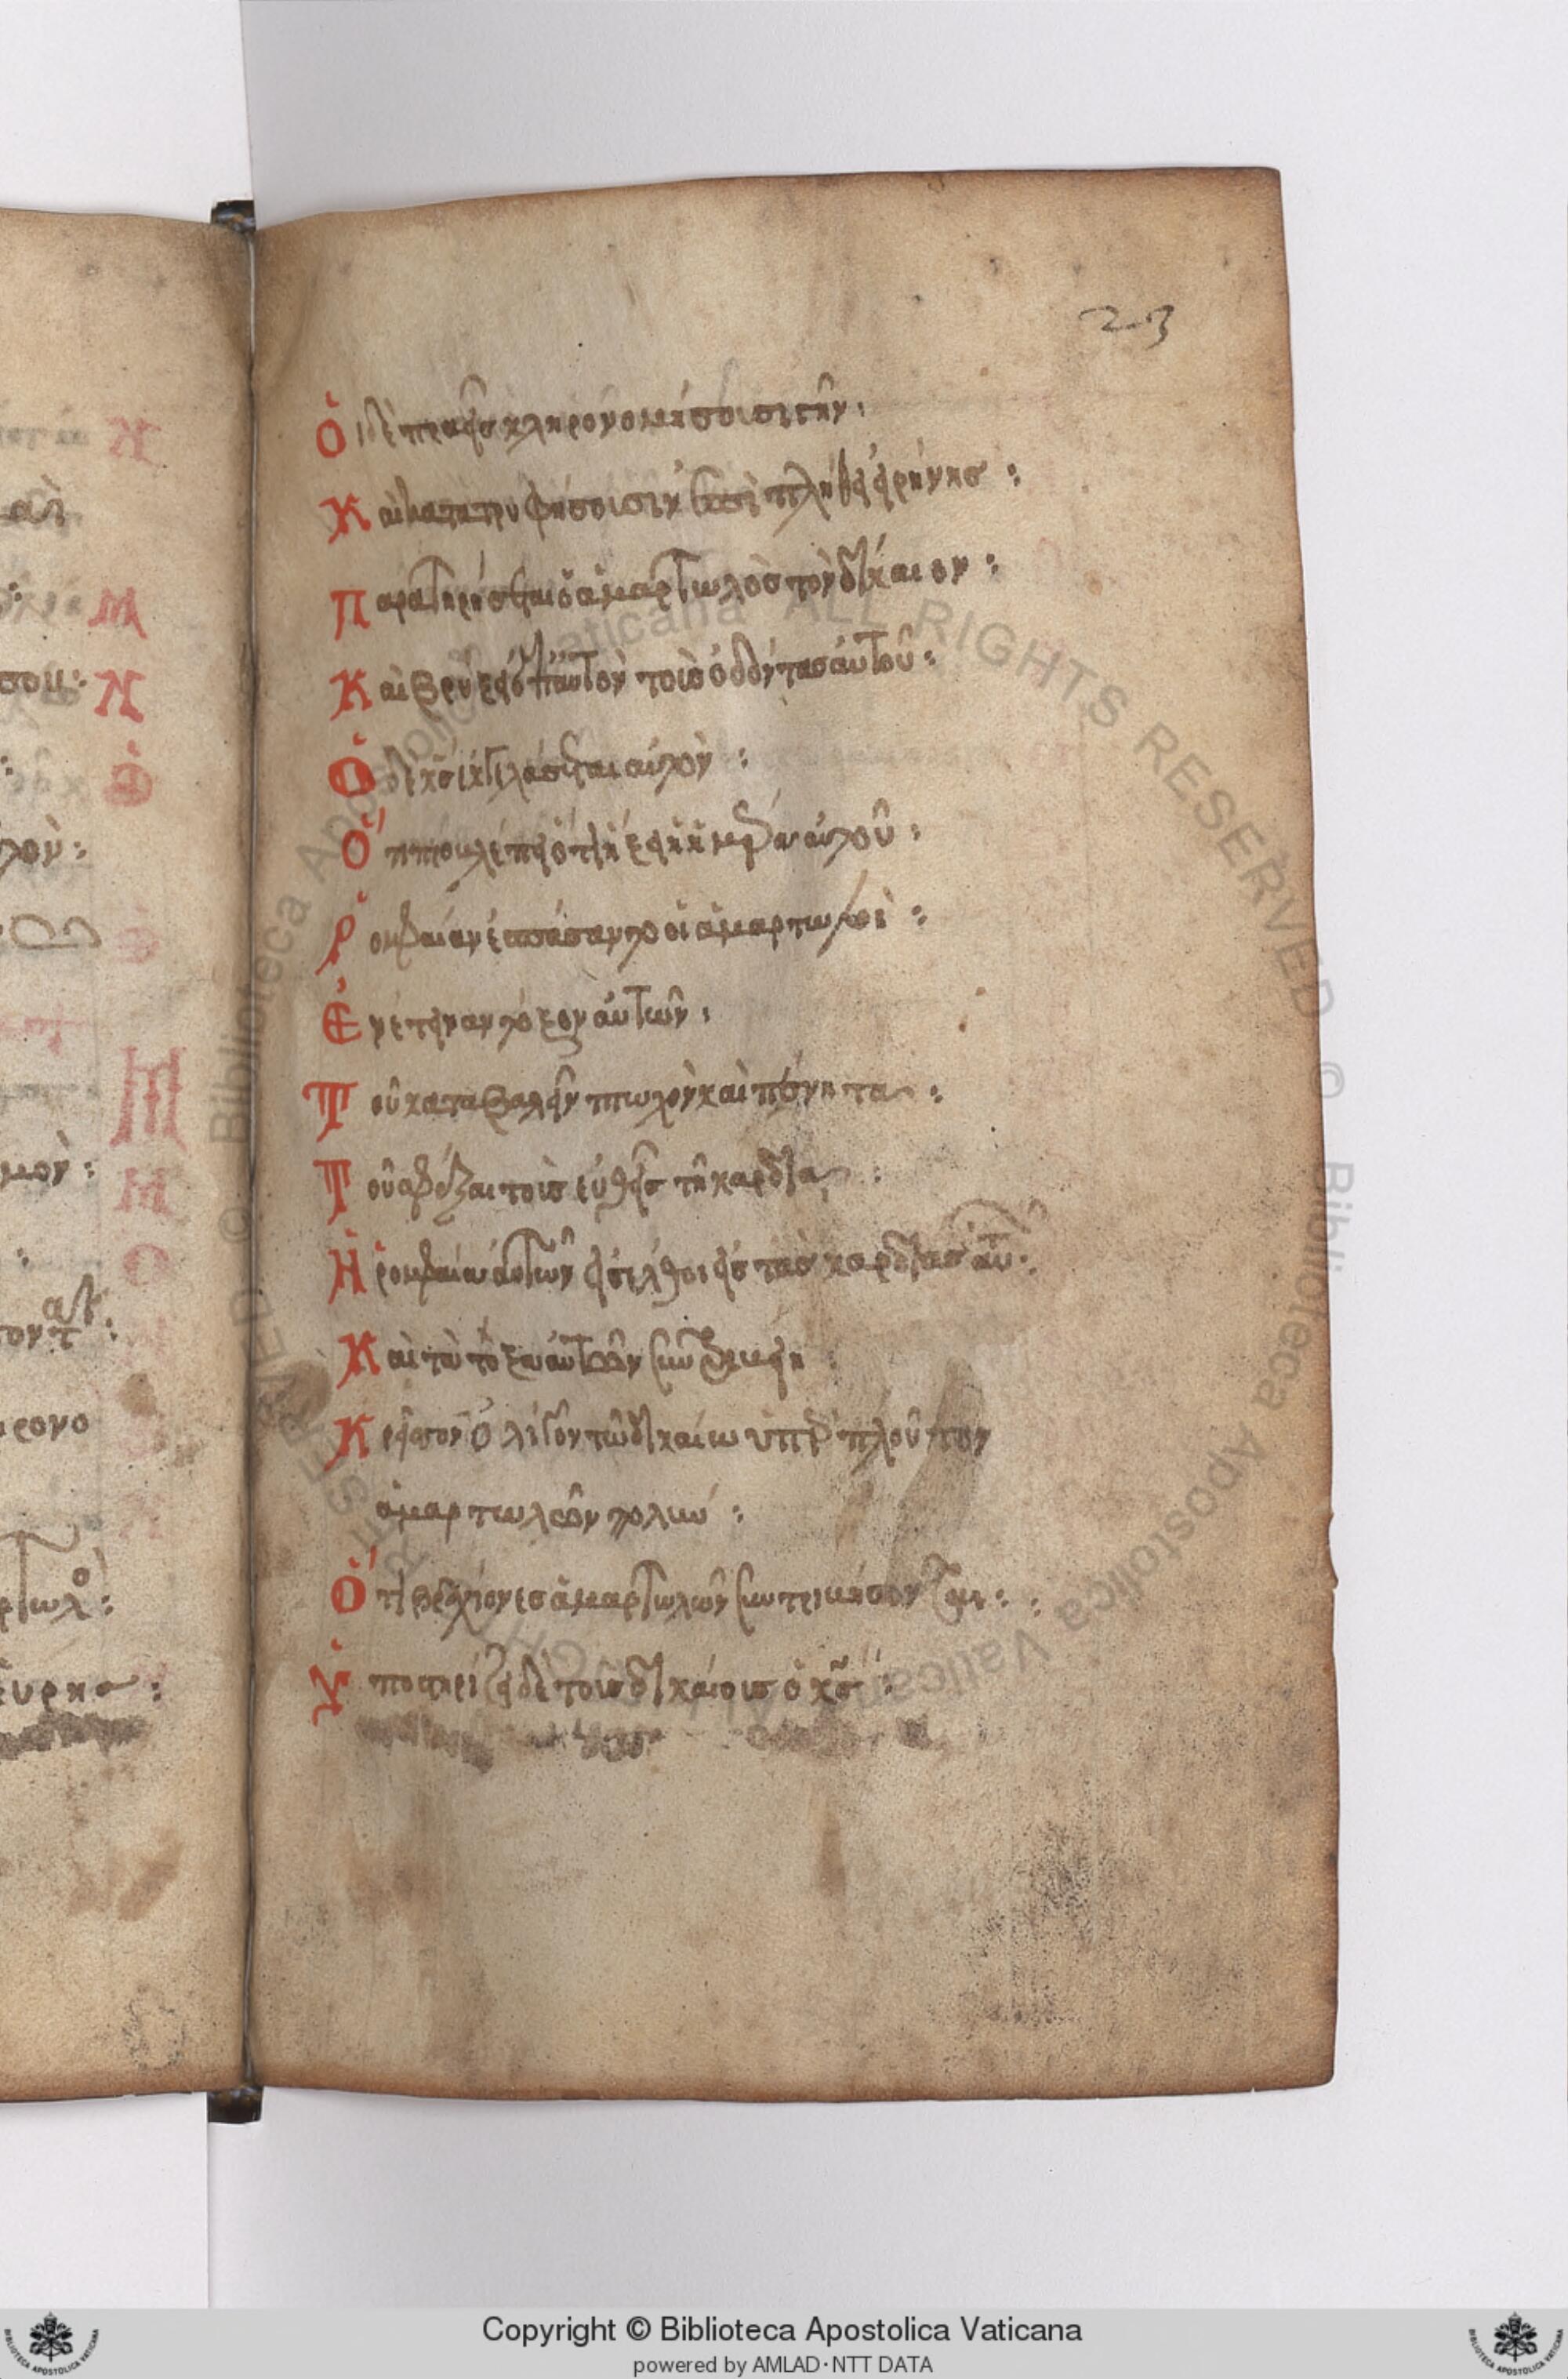 23
Ὁι δὲ πραεῖς κληρονομήσουσι γῆν:
Καὶ κατατρυφήσουσιν ἐπὶ πλήθει εἰρήνης:
Παρατηρήσεται ὁ ἁμαρτωλὸς τὸν δίκαιον:
Καὶ βρύξει ἐπ αὐτὸν τοὺς ὀδόντας αὐτοῦ:
Ὁ δὲ κς ἐκγελάσεται αὐτὸν:
Ὅτι προβλέπει ὅτι ἥξει ἡ ἡμέρα αὐτοῦ:
Ῥομφαίαν ἐσπάσαντο οἱ ἁμαρτωλοὶ:
Ἐνέτειναν τόξον αὐτῶν:
Τοῦ καταβαλεῖν πτωχὸν καὶ πένητα:
Τοῦ σφάξαι τοὺς εὐθεῖς τῇ καρδίᾳ:
Ἡ ῥομφαία αὐτῶν εἰσέλθοι εἰς τὰς καρδίας αὐτ:
Καὶ τὰ τόξα αὐτῶν συντριβείη:
Κρεῖσσον ὀλίγον τῶ δικαίω ὑπὲρ πλοῦτον
ἁμαρτωλῶν πολύν:
Ὅτι βραχίονες ἁμαρτωλῶν συντριβήσονται:
Ὑποστηρίζει δὲ τοὺς δικαίους ὁ κς:
Copyright © Biblioteca Apostolica Vaticana
powered by AMLAD·NTT DATA